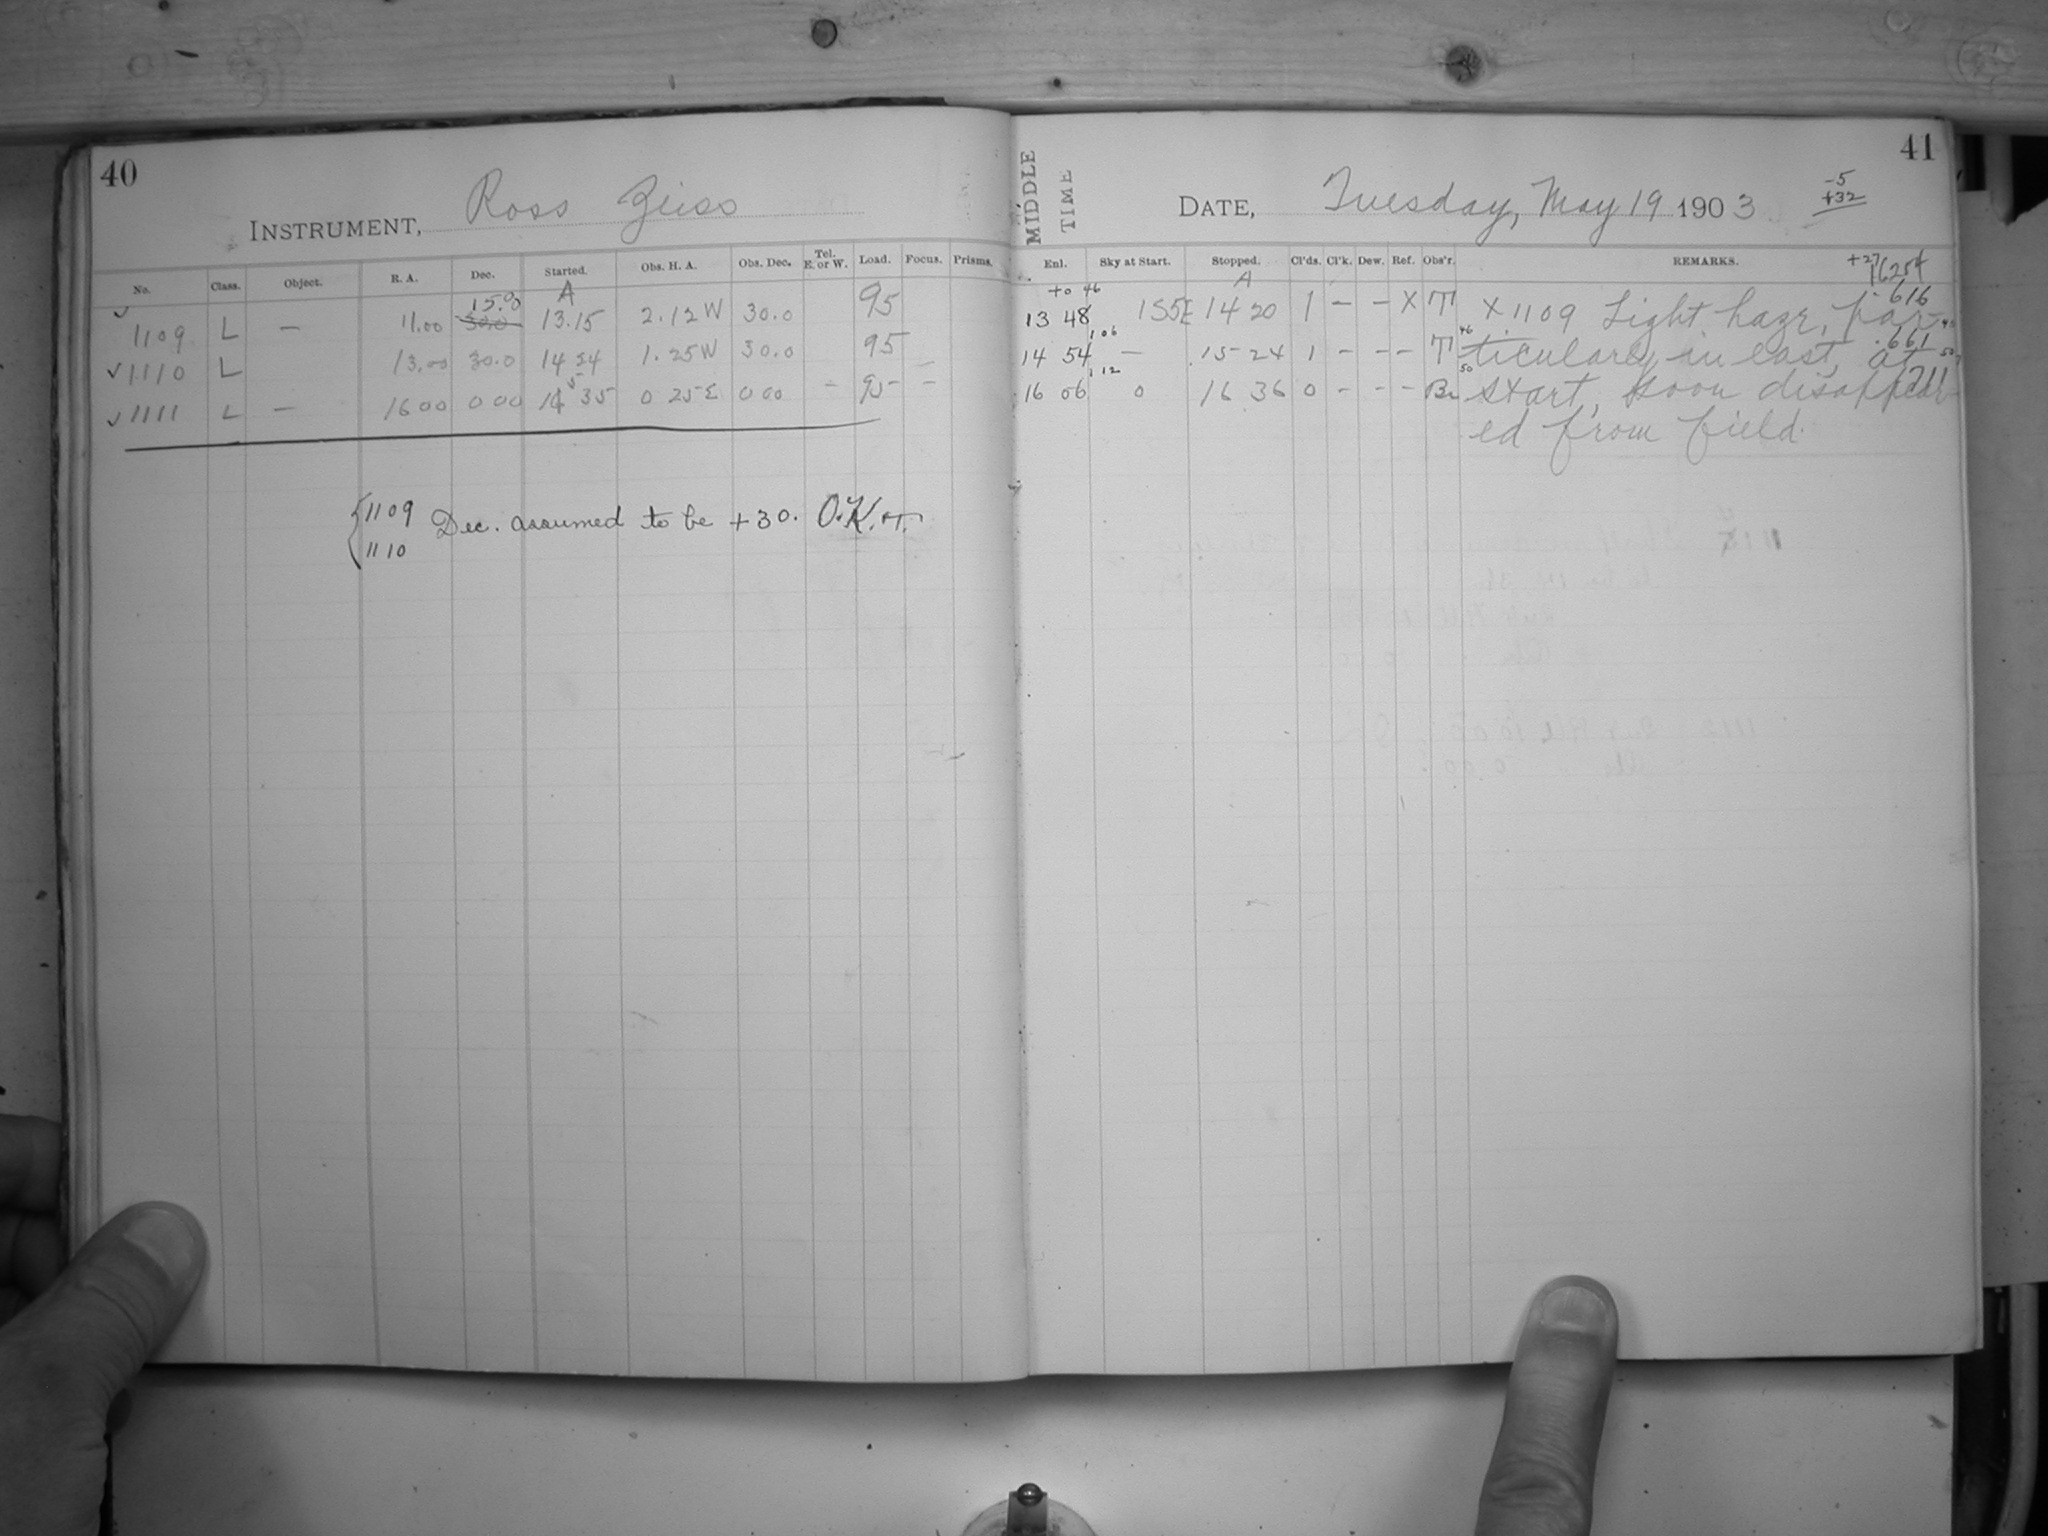 40
INSTRUMENT, Ross Zeiss
No. Class. Object. R. A. Dec. Started. Obs. H. A. Obs. Dec. Tel. E. or W. Load. Focus. Prisms.
A
1109 L — 11.00 30.0 15.0 13.15 2.12 W 30.0 95
1110 L 13.00 30.0 14 24 1.25 W 30.0 95 —
1111 L — 16 00 0 00 35 0 25 E 0 00 — 95 —
1109 Dec. assumed to be +30. O.K.
1110
41
MIDDLE TIME
DATE, Tuesday, May 19 1903
-5
+32
Enl. Sky at Start. Stopped. Cl'ds. Cl'k. Dew. Ref. Obs'r. REMARKS.
+27
16254
+0 46 A
.616
13 48 1S5E 14 20 1 — — X T X 1109 Light haze, par-
1 06 46 .661
14 54 — 15 24 1 — — — T ticularly in east, at
1 12 50 .711
16 06 0 16 36 0 — — — Br start, soon disappear-
ed from field.